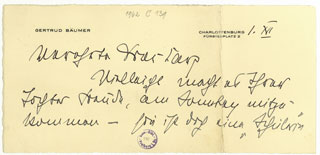 1962 C 134
GERTRUD BÄUMER
CHARLOTTENBURG
1. XI
Verehrte Frau
Vielleicht macht es Ihrer
Tochter Freude, am Sonntag mitzu-
kommen — sie ist doch eine „Schülerin"